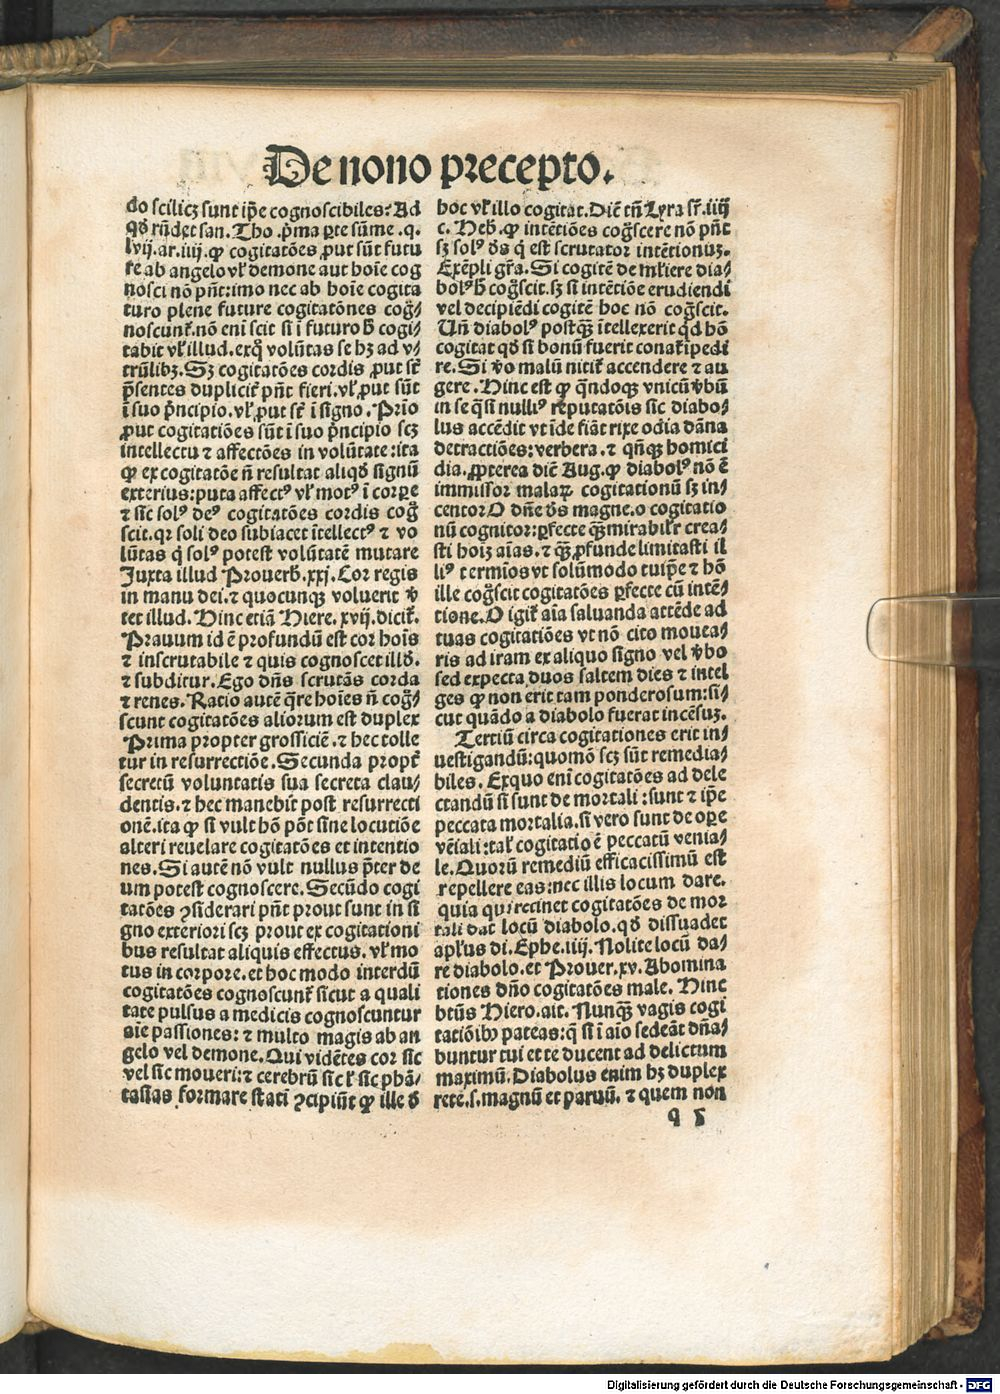 De nono precepto.
do scilicꝫ sunt ip̄e cognoscibiles: Ad
qḋ rñdet san. Tho. p̄ma ꝑte sūme .q.
lvij. ar. iiij. ꝙ cogitatōes ꝓut sūt futu
re ab angelo vl̓ demone aut hoīe cog
nosci nō pn̄t: imo nec ab hoīe cogita
turo plene future cogitatōnes cog̃-
noscunt̃. nō eni scit si ī futuro h̓ cogi-
tabit vl̓ illud. exq̄ volūtas se hꝫ ad v-
trūlibꝫ. Sꝫ cogitatōes cordis ꝓut st̄
p̄sentes duplicit̓ pn̄t fieri. vl̓ ꝓut sūt
ī suo p̄ncipio. vl̓ ꝓut st̄ ī signo. Prīo
ꝓut cogitatiōes sūt ī suo p̄ncipio scꝫ
intellectu ⁊ affectōes in volūtate: ita
ꝙ ex cogitatōe ñ resultat aliqḋ signū
exterius: puta affectꝰ vl̓ motꝰ ī corꝑe
⁊ sic solꝰ deꝰ cogitatōes cordis cog̃
scit. qꝛ soli deo subiacet ītellectꝰ ⁊ vo
lūtas q̇ solꝰ potest volūtatē mutare
Juxta illud Prouerb̓. xxj. Cor regis
in manu dei. ⁊ quocunqꝫ voluerit v̓
tet illud. Hinc etiā Hiere. xvij. dicit̓.
Prauum id ē profundū est cor hoīs
⁊ inscrutabile ⁊ quis cognoscet illḋ.
⁊ subditur. Ego dn̄s scrutās corda
⁊ renes. Ratio autē q̄re hoīes ñ cog̃-
scunt cogitatōes aliorum est duplex
Prima propter grossiciē. ⁊ hec tolle
tur in resurrectiōe. Secunda propt̓
secretū voluntatis sua secreta clau-
dentis. ⁊ hec manebit post resurrecti
onē. ita ꝙ si vult hō pōt sine locutiōe
alteri reuelare cogitatōes et intentio
nes. Si autē nō vult nullus p̄ter de
um potest cognoscere. Secūdo cogi
tatōes ꝯsiderari pn̄t prout sunt in si
gno exteriori scꝫ prout ex cogitationi
bus resultat aliquis effectus. vl̓ mo
tus in corpore. et hoc modo interdū
cogitatōes cognoscunt̓ sicut a quali
tate pulsus a medicis cognoscuntur
aīe passiones: ⁊ multo magis ab an
gelo vel demone. Qui vidētes cor sic
vel sic moueri: ⁊ cerebrū sic l̓ sic phā-
tasias formare stati ꝯcipiūt ꝙ ille d̓
hoc vl̓ illo cogitat. Diē tn̄ Lyra sr̄. iiij
c. Heb̓. ꝙ intētiōes cog̃scere nō pn̄t
sꝫ solꝰ ds̄ q̇ est scrutator intētionuꝫ.
Exēpli gr̄a. Si cogitē de ml̓iere dia-
bolꝰ h̓ cog̃scit. sꝫ si intētiōe erudiendi
vel decipiēdi cogitē hoc nō cog̃scit.
Un̄ diabolꝰ postqꝫ̄ ītellexerit qd hō
cogitat qḋ si bonū fuerit conat̓ īpedi
re. Si v̓o malū nitit̓ accendere ⁊ au
gere. Hinc est ꝙ qn̄doqꝫ vnicū v̓bū
in se q̄si nulliꝰ reputatōis sic diabo-
lus accēdit vt īde fiāt rixe odia dāna
detractiōes: verbera. ⁊ qn̄qꝫ homici
dia. ꝓpterea diē Aug. ꝙ diabolꝰ nō ē
immissor malaꝝ cogitationū sꝫ in-
centor O dn̄e ds̄ magne. o cogitatio
nū cognitor: ꝑfecte qꝫ̄ mirabilr̓ crea-
sti hoiꝫ aīas. ⁊ qꝫ̄ ꝓfunde limitasti il
liꝰ termīos vt solūmodo tu ip̄e ⁊ hō
ille cog̃scit cogitatōes ꝑfecte cū intē-
tione. O igit̓ aīa saluanda attēde ad
tuas cogitatiōes vt nō cito mouea-
ris ad iram ex aliquo signo vel v̓bo
sed expecta duos saltem dies ⁊ intel
ges ꝙ non erit tam ponderosum: si-
cut quādo a diabolo fuerat incēsuꝫ.
Tertiū circa cogitationes erit in-
uestigandū: quomō scꝫ sūt remedia-
biles. Exquo eni cogitatōes ad dele
ctandū si sunt de mortali: sunt ⁊ ip̄e
peccata mortalia. si vero sunt de oꝑe
vēiali: tal̓ cogitatio ē peccatū venia-
le. Quorū remediū efficacissimū est
repellere eas: nec illis locum dare.
quia qui retinet cogitatōes de mor
tali dat locū diabolo. qḋ dissuadet
apl̓us di. Ephe. iiij. Nolite locū da-
re diabolo. et Prouer. xv. Abomina
tiones dn̄o cogitatōes male. Hinc
btūs Hiero. ait. Nunqꝫ̄ vagis cogi
tatiōibꝰ pateas: q̄ si ī aīo sedeāt dn̄a-
buntur tui et te ducent ad delictum
maximū. Diabolus enim hꝫ duplex
rete. s. magnū et paruū. ⁊ quem non
q 5
Digitalisierung gefördert durch die Deutsche Forschungsgemeinschaft - DFG